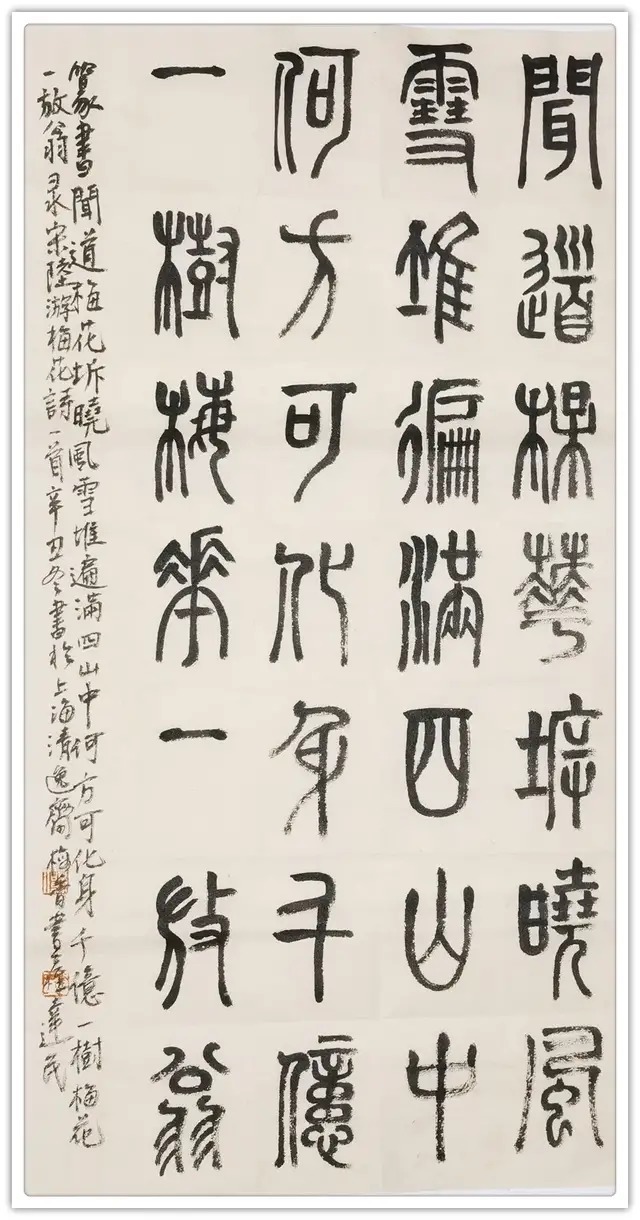 聞道楳華坼曉風
雪堆徧滿四山中
何方可化身千億
一樹梅華一放翁
篆書聞道梅花坼曉風雪堆遍滿四山中何方可化身千億一樹梅花
一放翁录宋陸游梅花詩一首辛丑冬書於上海清逸齋